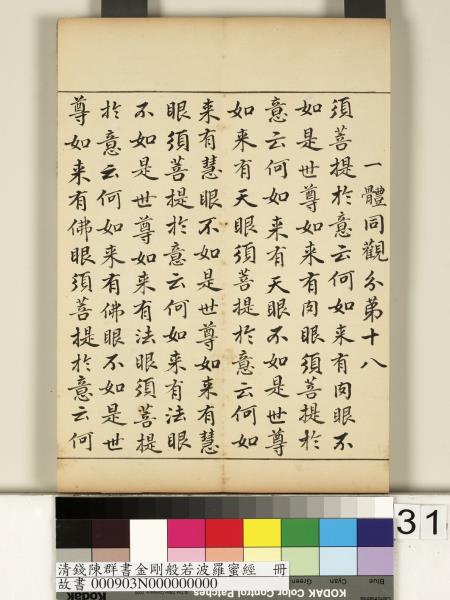 一體同觀分第十八
須菩提於意云何如来有肉眼不
如是世尊如来有肉眼須菩提於
意云何如来有天眼不如是世尊
如来有天眼須菩提於意云何如
来有慧眼不如是世尊如来有慧
眼須菩提於意云何如来有法眼
不如是世尊如来有法眼須菩提
於意云何如来有佛眼不如是世
尊如来有佛眼須菩提於意云何
31
Blue Cyan Green
KODAK Color Control Patches
清錢陳群書金剛般若波羅蜜經 冊
故書 000903N000000000